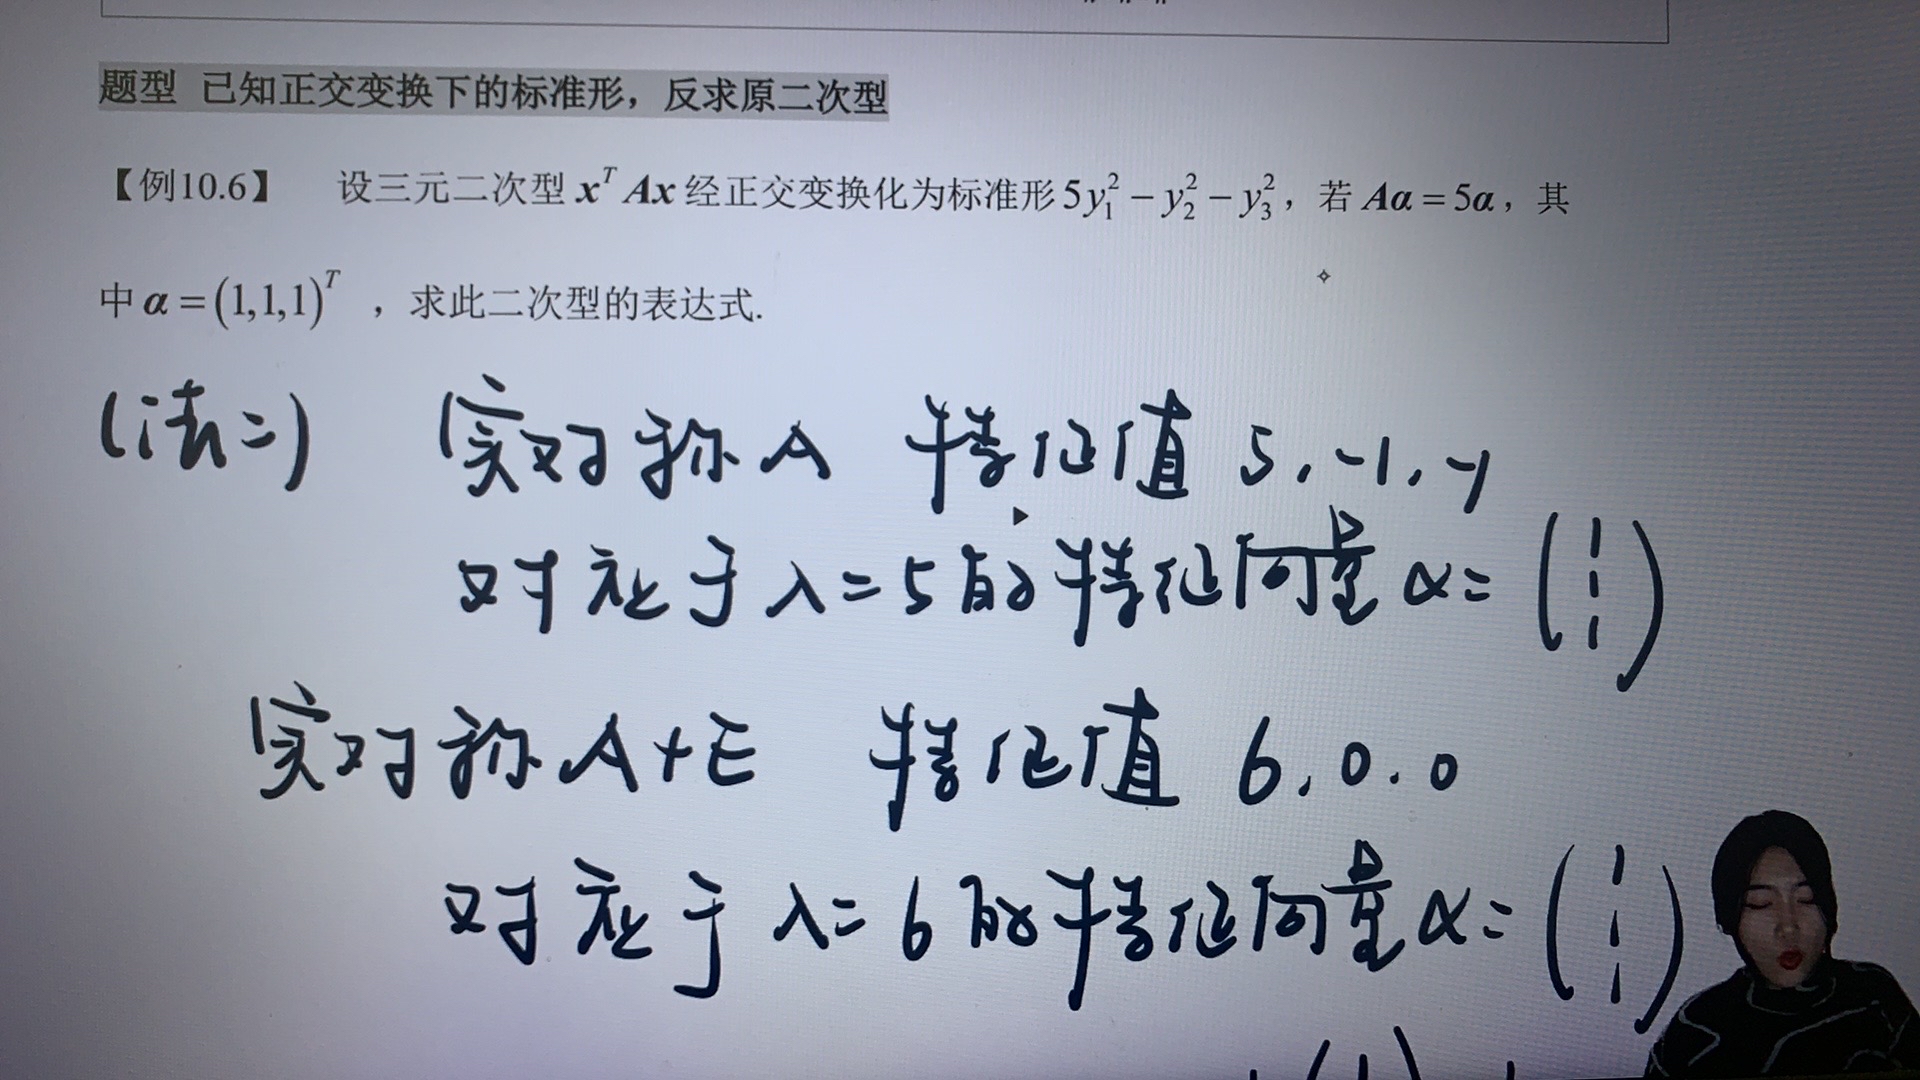 题型 已知正交变换下的标准形，反求原二次型
【例10.6】 设三元二次型 xᵀAx 经正交变换化为标准形 5y₁² − y₂² − y₃²，若 Aα = 5α，其
中 α = (1,1,1)ᵀ ，求此二次型的表达式.
(法二) 实对称A 特征值 5, -1, -1
对应于 λ=5 的特征向量 α= (1 1 1)
实对称A+E 特征值 6, 0, 0
对应于 λ=6 的特征向量 α= (1 1 1)